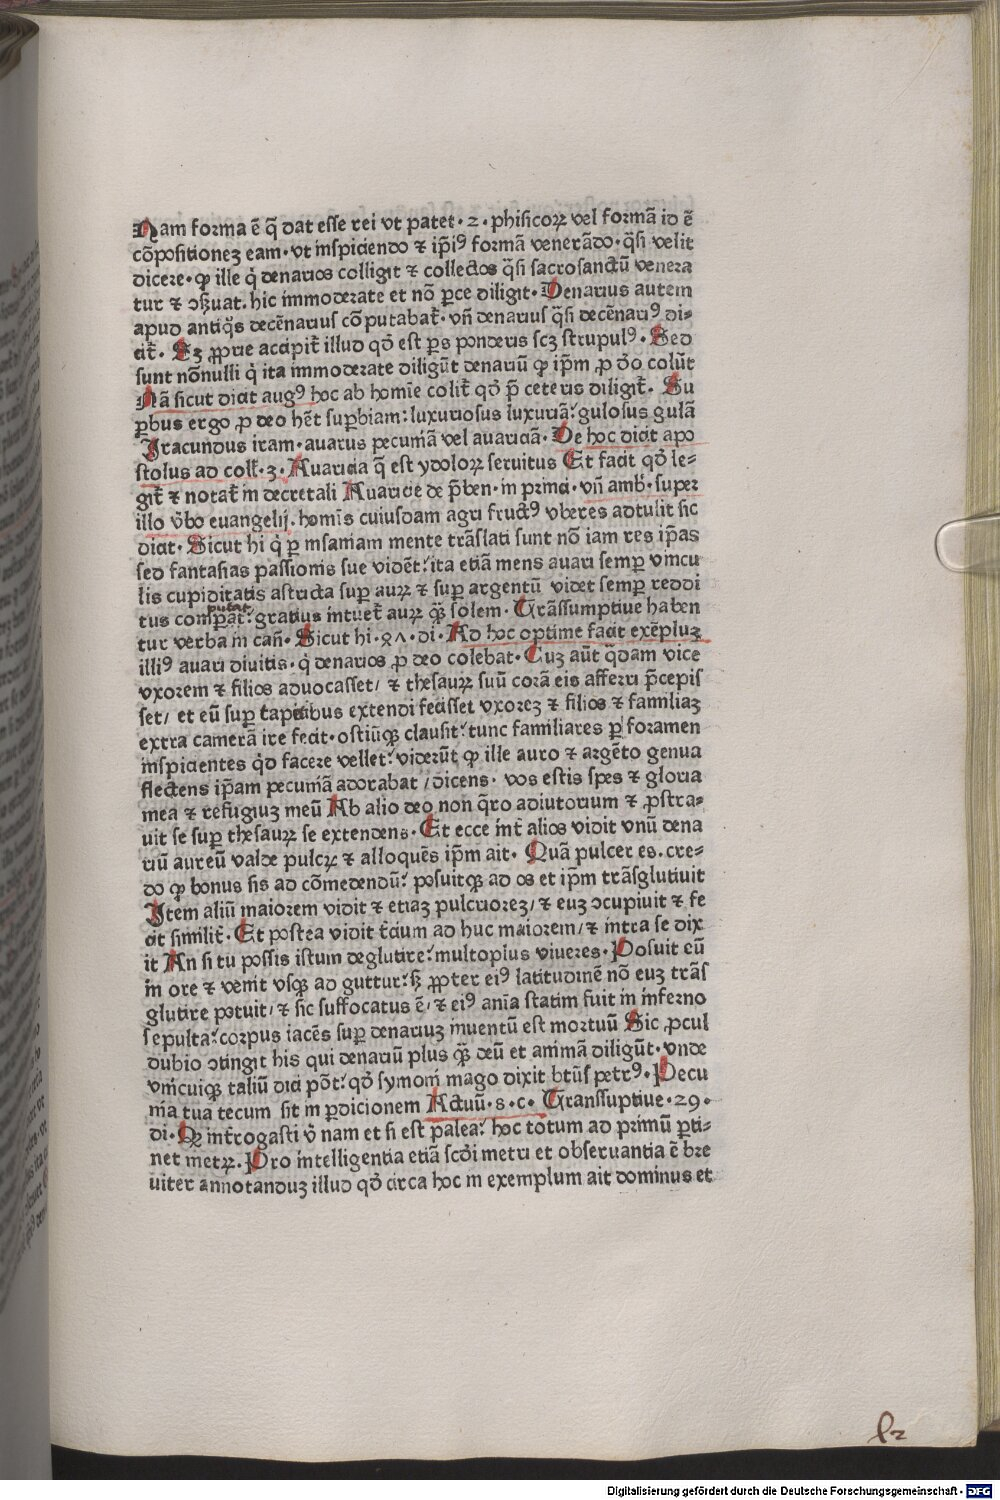 Nam forma ē q̄ dat esse rei vt patet · 2 · phisicoꝝ vel formā id ē
cōpositioneʒ eam · vt inspiciendo ⁊ ip̄iꝰ formā venerādo · q̄si velit
dicere · ꝙ ille q̇ denarios colligit ⁊ collectos q̄si sacrosanctū venera
tur ⁊ ↄẜuat. hic immoderate et nō ꝑce diligit · Denarius autem
apud antiq̇s decēnarius cōputabat᷑ · vn̄ denarius q̄si decēnariꝰ di⸗
cit᷑ · Sʒ ꝓprie accipit᷑ illud qd̓ est ꝑs ponderis scʒ strupulꝰ · Sed
sunt nōnulli q̇ ita immoderate diligūt denariū ꝙ ip̄m ꝓ do̅ colūt
Nā sicut dicit augꝰ hoc ab homīe colit᷑ qd̓ p̄ ceteris diligit᷑ · Su
ꝑbus ergo ꝓ deo hēt suꝑbiam: luxuriosus luxuriā: gulosus gulā
Iracundus iram · auarus pecuniā vel auariciā · De hoc dicit apo
stolus ad coll᷑ · 3 · Auaricia q̄ est ydoloꝝ seruitus Et facit qd̓ le⸗
git᷑ ⁊ notat᷑ in decretali Auaricie de p̄ben · in princi · vn̄ amb᷑ · super
illo v̓bo euangelij · homīs cuiusdam agri fructꝰ vberes adtulit sic
dicit · Sicut hi q̇ ꝑ insaniam mente trāslati sunt nō iam res ip̄as
sed fantasias passionis sue vidēt: ita etiā mens auari semꝑ vincu
lis cupiditatis astricta suꝑ auꝝ ⁊ suꝑ argentū videt semꝑ reddi
putat
tus comꝑat᷑: gratius intuet᷑ auꝝ q̄ꝫ solem · Trāssumptiue haben
tur verba in can̄ · Sicut hi · ꝝꞥ · di · Ad hoc optime facit exēpluʒ
illiꝰ auari diuitis · q̇ denarios ꝓ deo colebat · Cuʒ aūt q̇dam vice
vxorem ⁊ filios aduocasset/ ⁊ thesauꝝ suū corā eis afferri p̄cepis
set/ et eū suꝑ tapitibus extendi fecisset vxoreʒ ⁊ filios ⁊ familiaʒ
extra camerā ire fecit · ostiūqꝫ clausit: tunc familiares ꝑ foramen
inspicientes q̇d facere vellet: viderūt ꝙ ille auro ⁊ argēto genua
flectens ip̄am pecuniā adorabat / dicens · vos estis spes ⁊ gloria
mea ⁊ refugiuʒ meū Ab alio deo non q̄ro adiutorium ⁊ ꝓstra⸗
uit se suꝑ thesauꝝ se extendens · Et ecce int᷑ alios vidit vnū dena
riū aureū valde pulcꝝ ⁊ alloquēs ip̄m ait · Quā pulcer es · cre⸗
do ꝙ bonus sis ad cōmedendū: posuitqꝫ ad os et ip̄m trāsglutiuit
Item aliū maiorem vidit ⁊ etiaʒ pulcrioreʒ/ ⁊ euʒ ↄcupiuit ⁊ fe
cit similit᷑ · Et postea vidit t᷑cium ad huc maiorem/ ⁊ intra se dix
it An si tu possis istum deglutire: multoplus viueres · Posuit eū
in ore ⁊ venit vsqꝫ ad guttur: sꝫ ꝓpter eiꝰ latitudinē nō euʒ trās
glutire potuit/ ⁊ sic suffocatus ē/ ⁊ eiꝰ anīa statim fuit in inferno
sepulta: corpus iacēs suꝑ denariuʒ inuentū est mortuū Sic ꝓcul
dubio ↄtingit his qui denariū plus q̄ꝫ deū et animā diligūt · vnde
vnicuiqꝫ taliū dici pōt: qd̓ symoni mago dixit btūs petrꝰ · Pecu
nia tua tecum sit in ꝑdicionem Actuū · 8 · c · Transsuptiue · 29 ·
di · Qꝝ int᷑rogasti v̓ nam et si est palea: hoc totum ad primū ꝑti⸗
net metꝝ · Pro intelligentia etiā scd̓i metri et obseruantia ē bre
uiter annotanduʒ illud qd̓ circa hoc in exemplum ait dominus et
l2
Digitalisierung gefördert durch die Deutsche Forschungsgemeinschaft · DFG